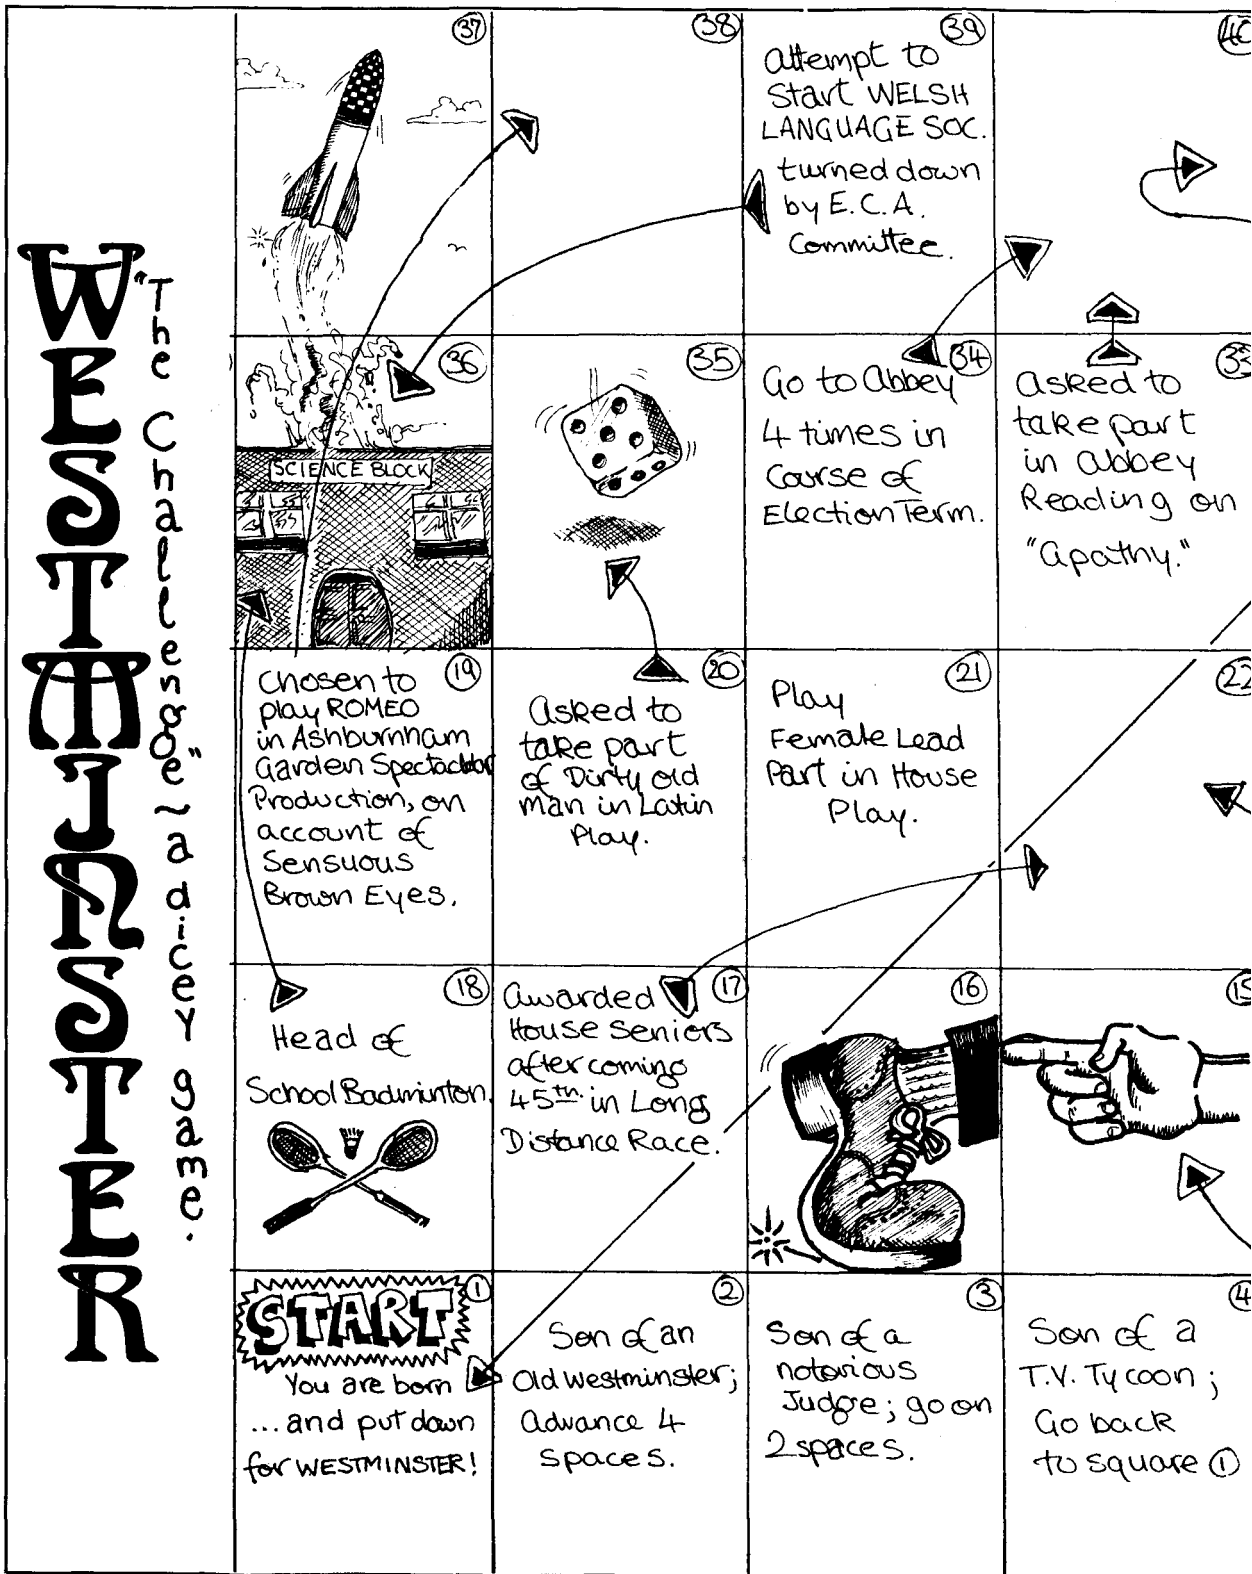 WESTMINSTER
"The Challenge" ~ a dicey game.
37
38
39
Attempt to
Start WELSH
LANGUAGE SOC.
turned down
by E.C.A.
Committee.
40
36
SCIENCE BLOCK
35
34
Go to Abbey
4 times in
Course of
Election Term.
33
Asked to
take part
in Abbey
Reading on
"Apathy."
19
Chosen to
play ROMEO
in Ashburnham
Garden Spectacular
Production, on
account of
Sensuous
Brown Eyes.
20
Asked to
take part
of Dirty old
man in Latin
Play.
21
Play
Female Lead
Part in House
Play.
22
18
Head of
School Badminton.
17
Awarded
House Seniors
after coming
45th. in Long
Distance Race.
16
15
1
START
You are born
...and put down
for WESTMINSTER!
2
Son of an
Old Westminster;
Advance 4
spaces.
3
Son of a
notorious
Judge; go on
2 spaces.
4
Son of a
T.V. Tycoon;
Go back
to square 1